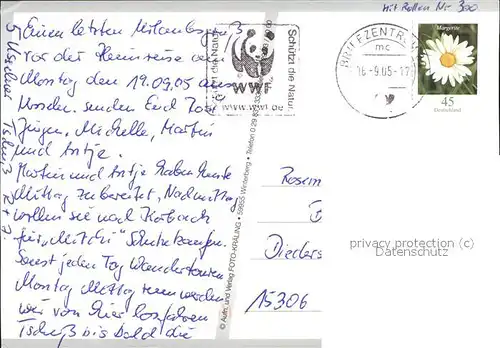 Mit Rollen Nr 300
Einen letzten Urlaubsgruß
vor der Heimreise am
Montag den 19.09.05 aus
senden Euch
Jürgen, Michelle, Martin
und Antje.
Martin und Antje haben heute
Mittag zubereitet, Nachmittag
wollen sie nach Korbach
für „Mitchi“ Schuhe kaufen.
Sonst jeden Tag Wandertouren
Montag Mittag werden
wir von hier losfahren
Tschüß bis bald die
Schützt die Natur.
WWF
www.wwf.de
BRIEFZENTRUM
mc
16.-9.05-17
Margerite
45
Deutschland
© Aufn. und Verlag FOTO-KRALING · 59955 Winterberg · Telefon 0 29
Rosem
Dieders
15306
privacy protection (c)
Datenschutz